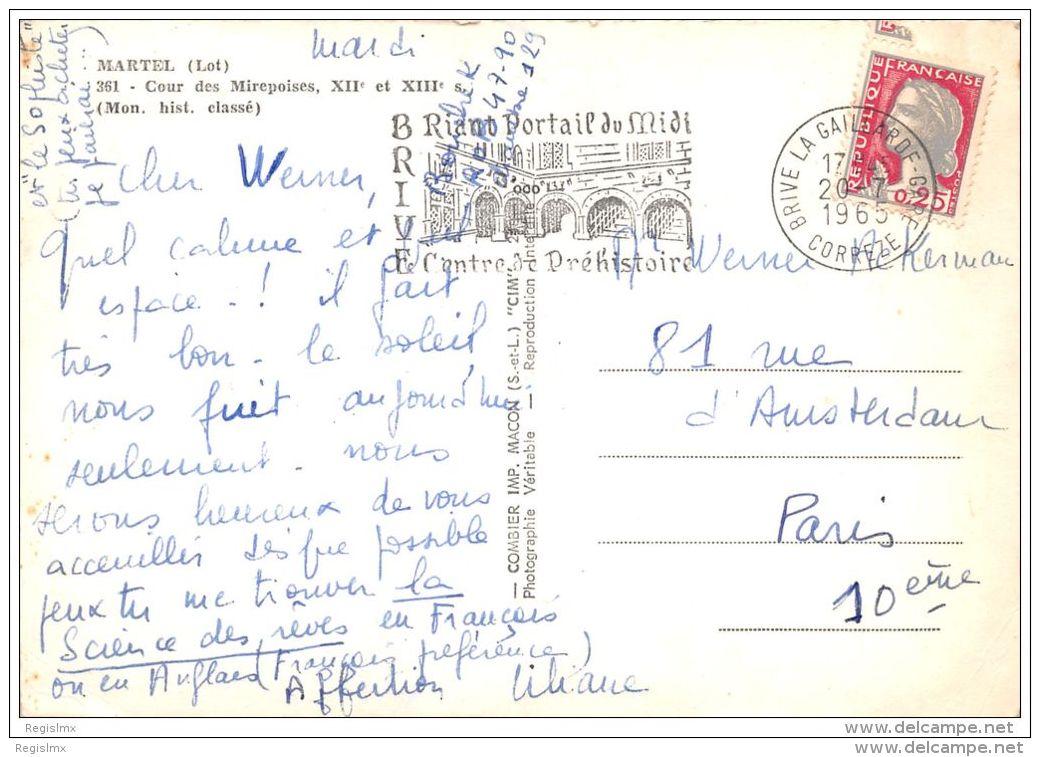 mardi
MARTEL (Lot)
361 - Cour des Mirepoises, XIIe et XIIIe s.
(Mon. hist. classé)
et "le Sophiste"
(tu peux acheter
je paierai ...)
47-90
129
BRIVE
Riant Portail du Midi
Centre de Préhistoire
FRANÇAISE
REPUBLIQUE
0,25
BRIVE LA GAILLARDE-GARE
17 H 45
20-7
1965
CORREZE
Cher Werner,
Quel calme et quel
espace -! il fait
très bon - le soleil
nous fuit aujourd'hui
seulement - nous
serons heureux de vous
accueillir dès que possible
peux tu me trouver la
Science des rêves en Français
ou en Anglais (Français préférence)
Affection Liliane
— COMBIER IMP. MACON (S.-et-L.) "CIM"
Photographie Véritable — Reproduction Interdite
Mr Werner Ackerman
81 rue
d'Amsterdam
Paris
10ème
Regislmx
Regislmx
www.delcampe.net
www.delcampe.net